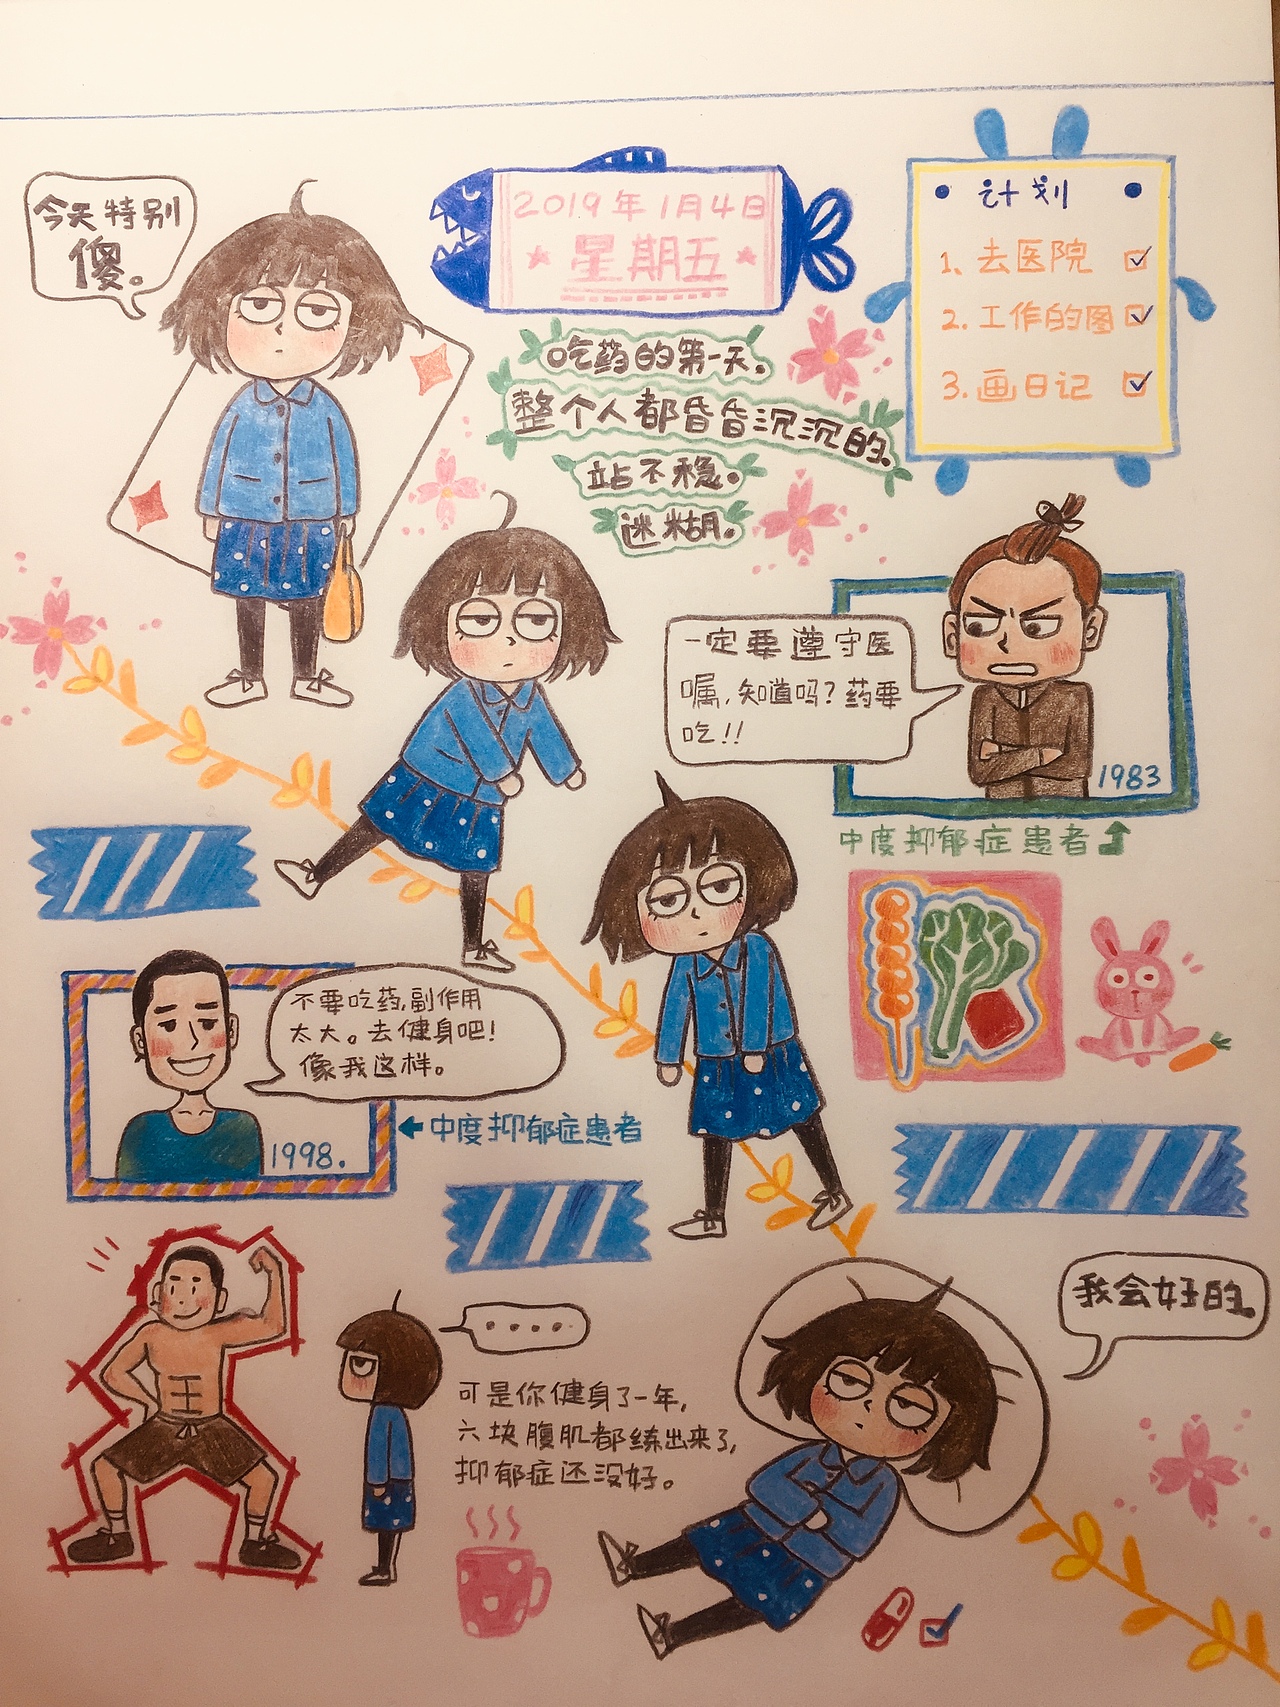 今天特别
傻。
2019年1月4日
星期五
计划
1、去医院
2.工作的图
3.画日记
吃药的第一天。
整个人都昏昏沉沉的。
站不稳。
迷糊。
一定要遵守医
嘱,知道吗?药要
吃!!
1983
中度抑郁症患者
不要吃药,副作用
太大。去健身吧!
像我这样。
1998.
中度抑郁症患者
王
.....
可是你健身了一年,
六块腹肌都练出来了,
抑郁症还没好。
我会好的。